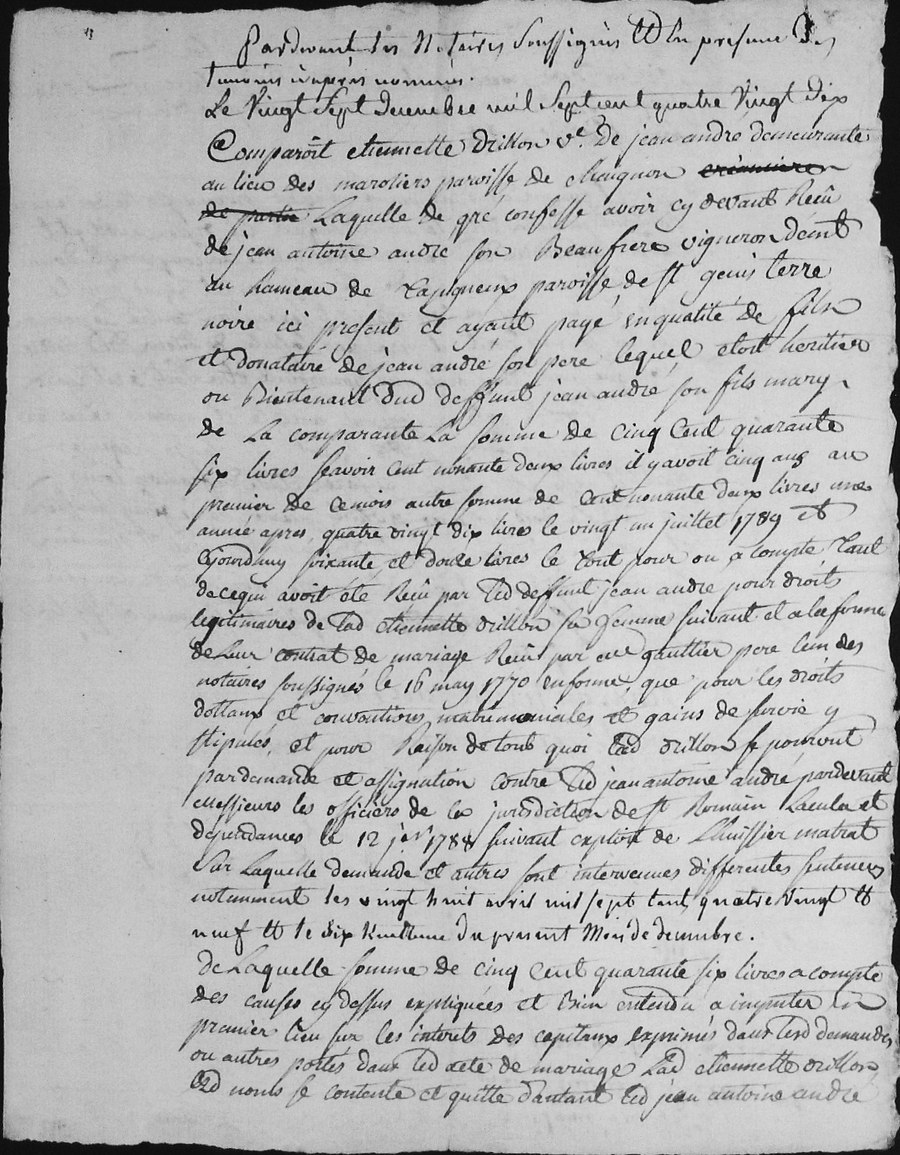 Pardevant les Notaires soussignés Et En presence Des
temoins cyaprès nommés.
Le Vingt Sept decembre mil Sept cent quatre Vingt dix
Comparoît etiennette drillon v.e De jean andré demeurante
au lieu des maroliers paroisse de chaignon creanciere
de partie Laquelle de gré confesse avoir cy devant Reçu
de jean antoine andre son Beaufrere vigneron demt
au hameau de paroisse de st genis terre
noire ici present et ayant payé en qualité de fils
et donataire de jean andré son pere lequel etoit heritier
ou Bientenant dud deffunt jean andré son fils mary
de La comparante La somme de cinq Cent quarante
six livres scavoir cent nonante deux livres il y avoit cinq ans au
premier de ce mois autre somme de Cent nonante deux livres une
année apres, quatre vingt dix livres le vingt un juillet 1789 et
cejourdhuy soixante et douze livres le tout pour ou a compte tant
de ce qui avoit été Reçu par led deffunt jean andre pour droits
legitimaires de lad etiennette drillon sa femme suivant et a la forme
de Leur contrat de mariage Reçu par me gaultier pere l'un des
notaires soussignés le 16 may 1770 en forme, que pour les droits
dottaux et conventions matrimoniales et gains de survie y
stipulés, et pour Raison de tout quoi lad drillon se pourvut
par demande et assignation contre led jean antoine andré, pardevant
messieurs les officiers de la jurisdiction de st Romain et
dependances le 12 1788 suivant exploit de Lhuissier matrat
sur Laquelle demande et autres sont intervenues differentes sentences
notamment les vingt huit avril mil sept cent quatre vingt
neuf et le dix huitieme du present Mois de decembre.
de Laquelle somme de cinq cent quarante six livres a compte
des causes cy dessus expliquées et Bien entendu a imputer en
premier lieu sur les interets des capitaux exprimés dans lesd demandes
ou autres portés dans led acte de mariage Lad etiennette drillon
aud noms se contente et quitte d'autant led jean antoine andre